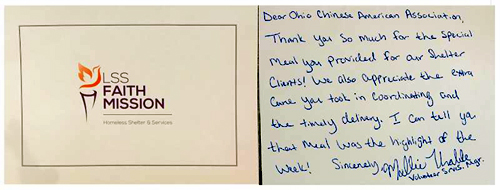 LSS
FAITH
MISSION
Homeless Shelter & Services
Dear Ohio Chinese American Association,
Thank you so much for the special
meal you provided for our shelter
clients! We also appreciate the extra
care you took in coordinating and
the timely delivery. I can tell ya
that meal was the highlight of the
week! Sincerely,
Volunteer Srvs. Mgr.